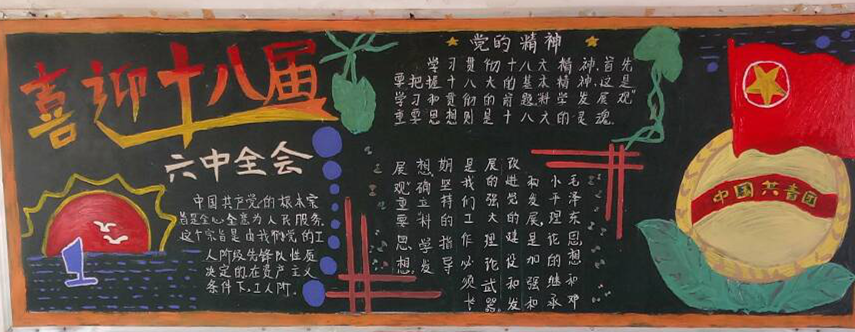 喜迎十八届
六中全会
中国共产党的根本宗
旨是全心全意为人民服务,
这个宗旨是由我们党的工
人阶级先锋队性质
决定的,在资产主义
条件下,工人阶.
★党的精神★
学习贯彻十八大精神,首先
要把握十八大的基本精神,这是
学习和贯彻的前题"科学发展观"
重要思想则是十八大的灵魂.
毛泽东思想和邓
小平理论的继承
和发展,是加强和
改进党的建设和发
展的强大理论武器,
是我们工作必须长
期坚持的指导
想确立科学发
展观重要思想.
中国共青团